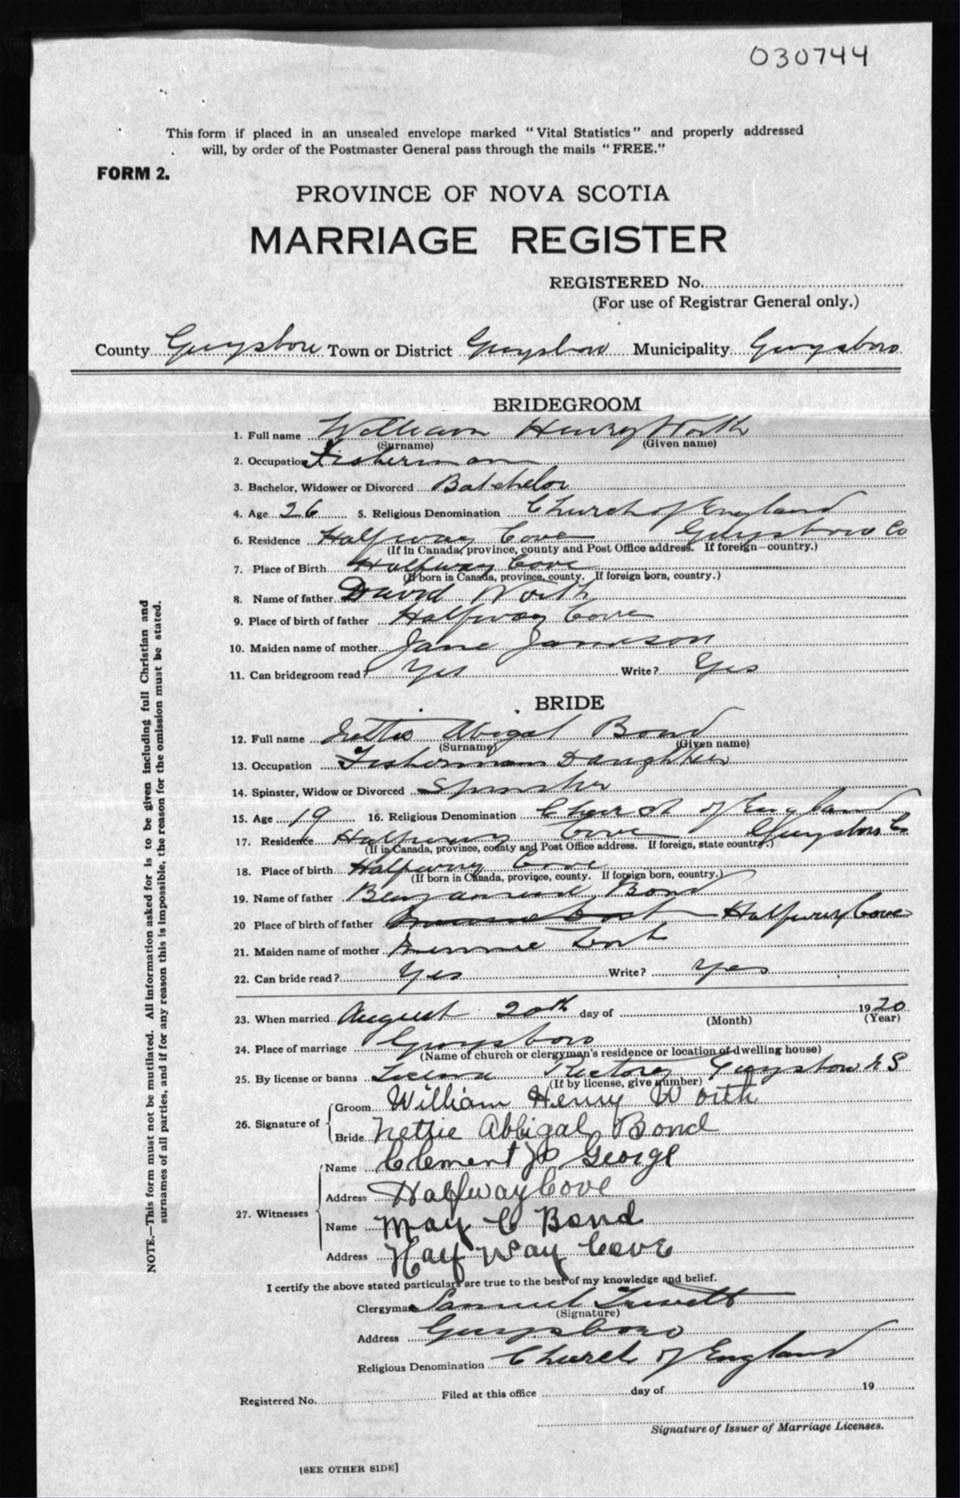 030744
This form if placed in an unsealed envelope marked "Vital Statistics" and properly addressed
will, by order of the Postmaster General pass through the mails "FREE."
FORM 2.
PROVINCE OF NOVA SCOTIA
MARRIAGE REGISTER
REGISTERED No.
(For use of Registrar General only.)
County Guysboro Town or District Guysboro Municipality Guysboro
BRIDEGROOM
1. Full name William Henry Worth
(Surname) (Given name)
2. Occupation Fisherman
3. Bachelor, Widower or Divorced Batchelor
4. Age 26 5. Religious Denomination Church of England
6. Residence Halfway Cove Guysboro Co
(If in Canada, province, county and Post Office address. If foreign—country.)
7. Place of Birth Halfway Cove
(If born in Canada, province, county. If foreign born, country.)
8. Name of father David Worth
9. Place of birth of father Halfway Cove
10. Maiden name of mother Jane Jameson
11. Can bridegroom read? Yes Write? Yes
BRIDE
12. Full name Nettie Abigal Bond
(Surname) (Given name)
13. Occupation Fishermans Daughter
14. Spinster, Widow or Divorced Spinster
15. Age 19 16. Religious Denomination Church of England
17. Residence Halfway Cove Guysboro Co
(If in Canada, province, county and Post Office address. If foreign, state country.)
18. Place of birth Halfway Cove
(If born in Canada, province, county. If foreign born, country.)
19. Name of father Benjamin Bond
20 Place of birth of father Halfway Cove
21. Maiden name of mother Minnie
22. Can bride read? Yes Write? Yes
23. When married August 20th day of 1920
(Month) (Year)
24. Place of marriage Guysboro
(Name of church or clergyman's residence or location of dwelling house)
25. By license or banns License Rectory Guysboro N S
(If by license, give number)
26. Signature of
Groom William Henry Worth
Bride Nettie Abbigal Bond
27. Witnesses
Name Clement George
Address Halfway Cove
Name May C Bond
Address Half Way Cove
I certify the above stated particulars are true to the best of my knowledge and belief.
Clergyman Samuel
(Signature)
Address Guysboro
Religious Denomination Church of England
Registered No. Filed at this office day of 19
Signature of Issuer of Marriage Licenses.
[SEE OTHER SIDE]
NOTE.—This form must not be mutilated. All information asked for is to be given including full Christian and
surnames of all parties, and if for any reason this is impossible, the reason for the omission must be stated.